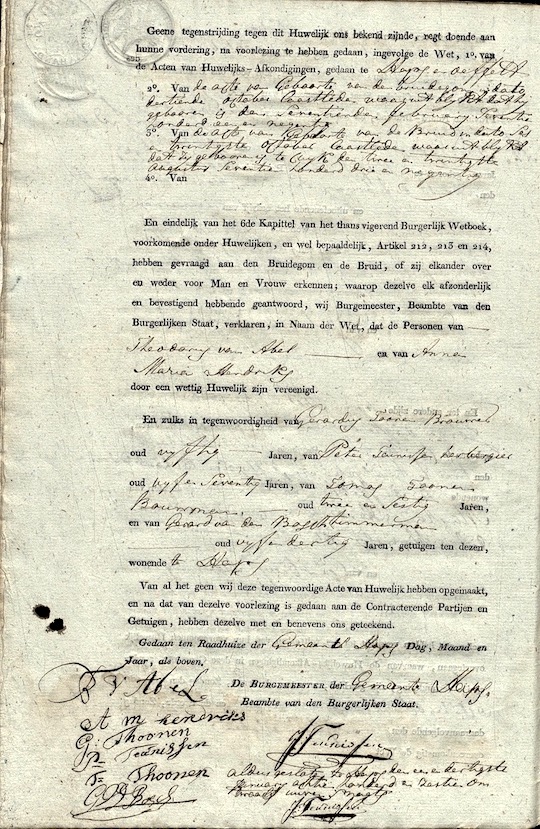 Geene tegenstrijding tegen dit Huwelijk ons bekend zijnde, regt doende aan
hunne vordering, na voorlezing te hebben gedaan, ingevolge de Wet, 1o. van
de Acten van Huwelijks-Afkondigingen, gedaan te Haps en oeffelt
2o. Van de acte van Geboorte van de bruidegom in dato
dertiende october laatstleden waaruit blykt dat hy
geboren is den Seventienden february Seventien
honderd een en negentig
3o. Van de acte van Geboorte van de Bruid in dato Ses
en twintigste october laatstleden waaruit blykt
dat zy geboren is te Cuyk den twee en twintigste
augustus Seventien honderd drie en negentig
4o. Van
En eindelijk van het 6de Kapittel van het thans vigerend Burgerlijk Wetboek,
voorkomende onder Huwelijken, en wel bepaaldelijk, Artikel 212, 213 en 214,
hebben gevraagd aan den Bruidegom en de Bruid, of zij elkander over
en weder voor Man en Vrouw erkennen; waarop dezelve elk afzonderlijk
en bevestigend hebbende geantwoord, wij Burgemeester, Beambte van den
Burgerlijken Staat, verklaren, in Naam der Wet, dat de Personen van
Theodorus van Abel en van Anna
Maria Hendriks
door een wettig Huwelijk zijn vereenigd.
En zulks in tegenwoordigheid van Gerardus Toonen
oud vyftig Jaren, van Peter Teunissen herbergier
oud vyf en Seventig Jaren, van Tomas Toonen
Bouwman, oud twee en Sestig Jaren,
en van Gerard van den Bosch timmerman
oud vyf en dertig Jaren, getuigen ten dezen,
wonende te Haps
Van al het geen wij deze tegenwoordige Acte van Huwelijk hebben opgemaakt,
en na dat van dezelve voorlezing is gedaan aan de Contracterende Partijen en
Getuigen, hebben dezelve met en benevens ons geteekend.
Gedaan ten Raadhuize der Gemeente Haps Dag, Maand en
Jaar, als boven.
De Burgemeester der Gemeente Haps
Beambte van den Burgerlijken Staat.
V Abel
A m hendricks
G: Thoonen
P Teonissen
T Thoonen
G V D Bosch
J Teunissen
aldus te Haps den een en dertigste
January agtien honderd en dertien om
twaalf uuren
J. Teunissen